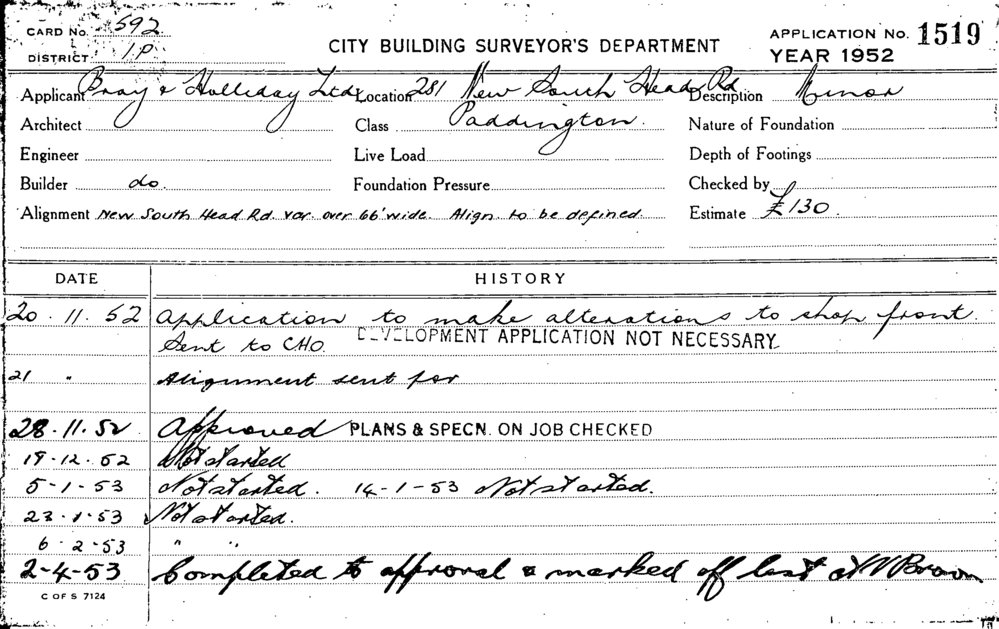 CARD No. 592
DISTRICT 1P
CITY BUILDING SURVEYOR'S DEPARTMENT
APPLICATION No. 1519
YEAR 1952
Applicant Bray & Holliday Ltd. Location 281 New South Head Rd Description Minor
Architect Class Paddington. Nature of Foundation
Engineer Live Load Depth of Footings
Builder do. Foundation Pressure Checked by
Alignment New South Head Rd. var. over 66' wide. Align. to be defined. Estimate £130.
DATE HISTORY
20.11.52 Application to make alterations to shop front.
Sent to CHO. DEVELOPMENT APPLICATION NOT NECESSARY.
21 " Alignment sent for
28.11.52 Approved PLANS & SPECN. ON JOB CHECKED
19-12-52 Not started
5-1-53 Not started. 14-1-53 Not started.
23-1-53 Not started.
6-2-53 " "
2-4-53 Completed to approval & marked off
C OF S 7124